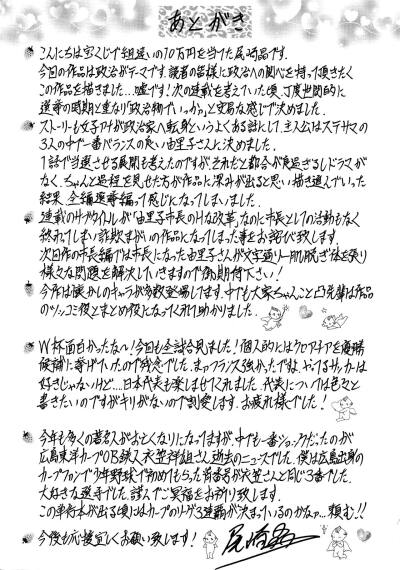 あとがき
こんにちは宝くじで組違いの10万円を当てた尾崎晶です。
今回の作品は政治がテーマです。読者の皆様に政治への関心を持って頂きたく
この作品を描きました…嘘です!次の連載を考えていた頃、丁度世間的に
選挙の時期と重なり「政治物でいっか」と安易な感じで決めました。
ストーリーも女子アナが政治家へ転身というよくある話にして、主人公はステサマの
3人の中で一番バランスの良い由里子さんに決めました。
1話で当選させる展開も考えたのですが、それだと都合が良過ぎるしドラマが
なく、ちゃんと過程を見せた方が作品に深みが出ると思い描き進んでいった
結果、全編選挙編って感じになってしまいました。
連載のサブタイトルが「由里子市長のHな改革」なのに市長としての活動もなく
終わってしまい詐欺まがいの作品になってしまった事をお詫び致します。
次回作の市長編では市長になった由里子さんが文字通り一肌脱ぎ体を張り
様々な問題を解決していきますので御期待下さい!
今作は懐かしのキャラが多数登場してます。中でも大家ちゃんこと凸先輩は作品
のツッコミ役とまとめ役になってくれて助かりました。
W杯面白かったな〜!今回も全試合見ました!個人的にはクロアチアを優勝
候補に挙げていたので残念でした。まぁフランス強かったですよ。やってるサッカーは
好きじゃないけど…日本代表も楽しませてくれました。代表については色々と
書きたいのですがキリがないので割愛します。お疲れ様でした!
今年も多くの著名人がお亡くなりになってますが、中でも一番ショックだったのが
広島東洋カープOB鉄人衣笠祥雄さん逝去のニュースでした。僕は広島出身の
カープファンで少年野球で初めてもらった背番号が衣笠さんと同じ3番でした。
大好きな選手でした。謹んでご冥福をお祈り致します。
この単行本が出る頃にはカープのリーグ3連覇が決まっているのかなァ…頼む!!
今後も応援宜しくお願い致します!
尾崎晶